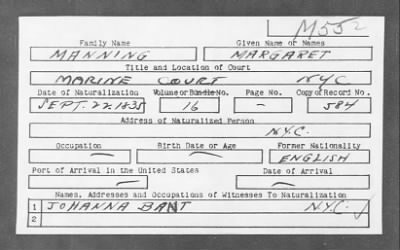 M552
Family Name Given Name or Names
MANNING MARGARET
Title and Location of Court
MARINE COURT NYC
Date of Naturalization Volume or Bundle No. Page No. Copy of Record No.
SEPT. 22 1838 16 - 584
Address of Naturalized Person
N.Y.C.
Occupation Birth Date or Age Former Nationality
— — ENGLISH
Port of Arrival in the United States Date of Arrival
— —
Names, Addresses and Occupations of Witnesses To Naturalization
1 JOHANNA BANT N.Y.C.
2